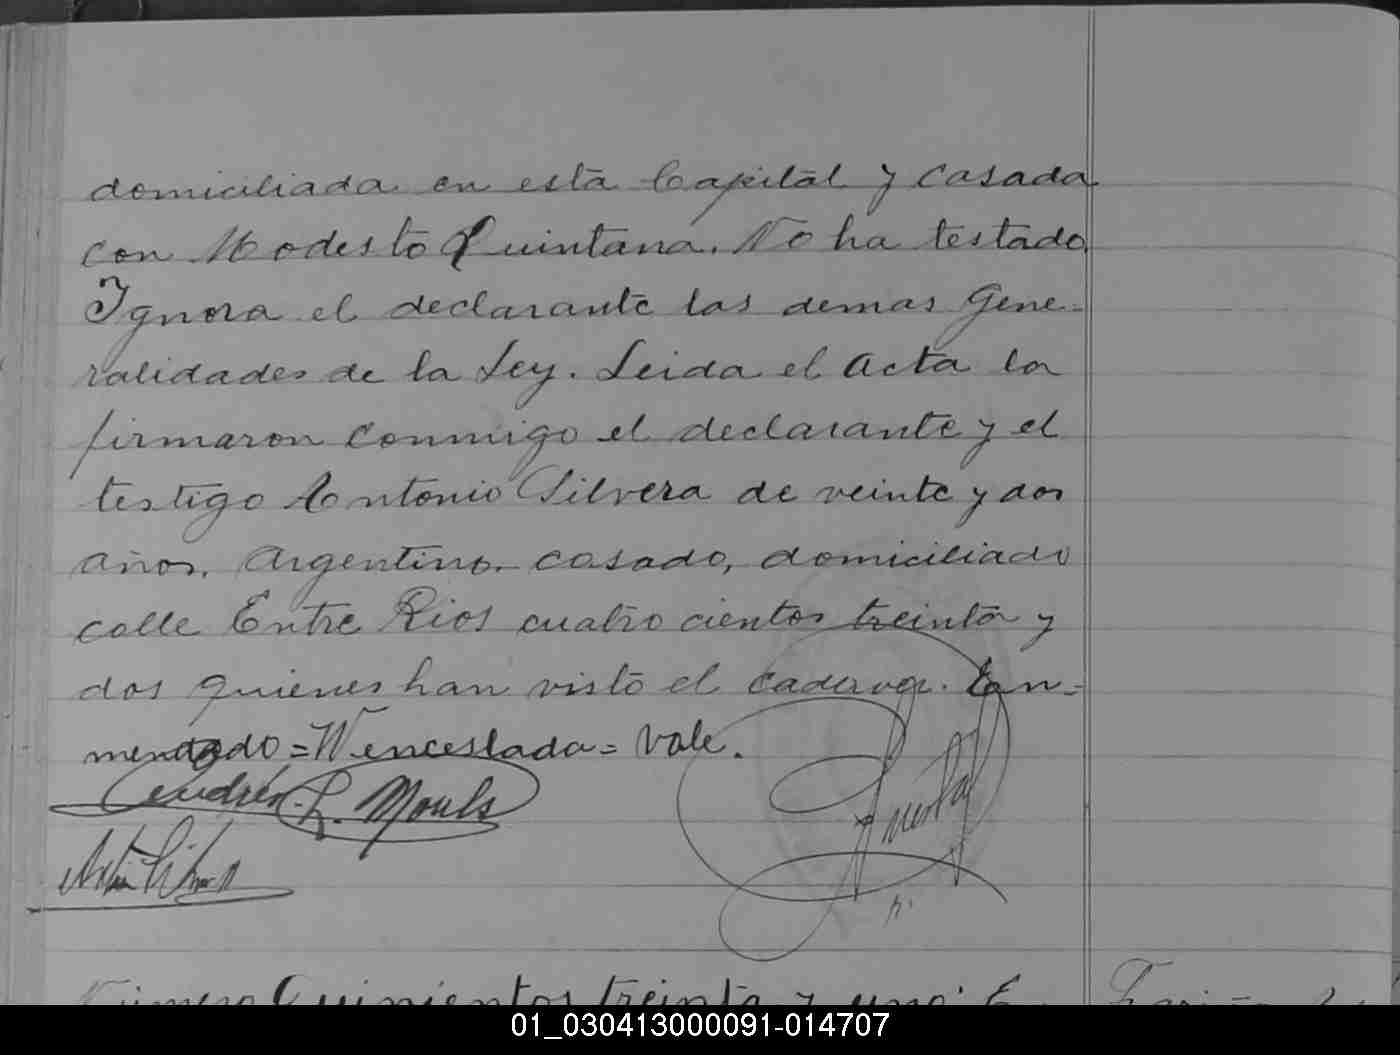 domiciliada en esta Capital y casada
con Modesto Quintana. No ha testado.
Ignora el declarante las demas Gene-
ralidades de la Ley. Leida el acta la
firmaron conmigo el declarante y el
testigo Antonio Silvera de veinte y dos
años, Argentino, casado, domiciliado
calle Entre Rios cuatro cientos treinta y
dos quienes han visto el cadaver. En-
mendado = Wenceslada = Vale.
Andrés L. Mouls
Número Quinientos treinta y uno: E
01_030413000091-014707